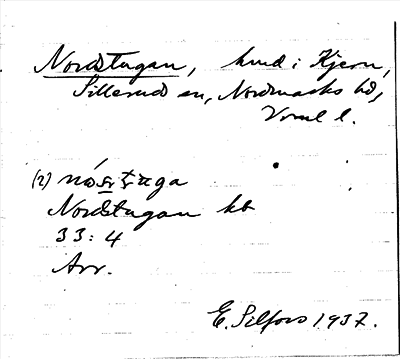 Nordstugan, hmd i Kjern,
Sillerud sn, Nordmarks hd,
Vrml l.
(2) 
Nordstugan kb
33:4
Arr.
E. Silfors 1937.